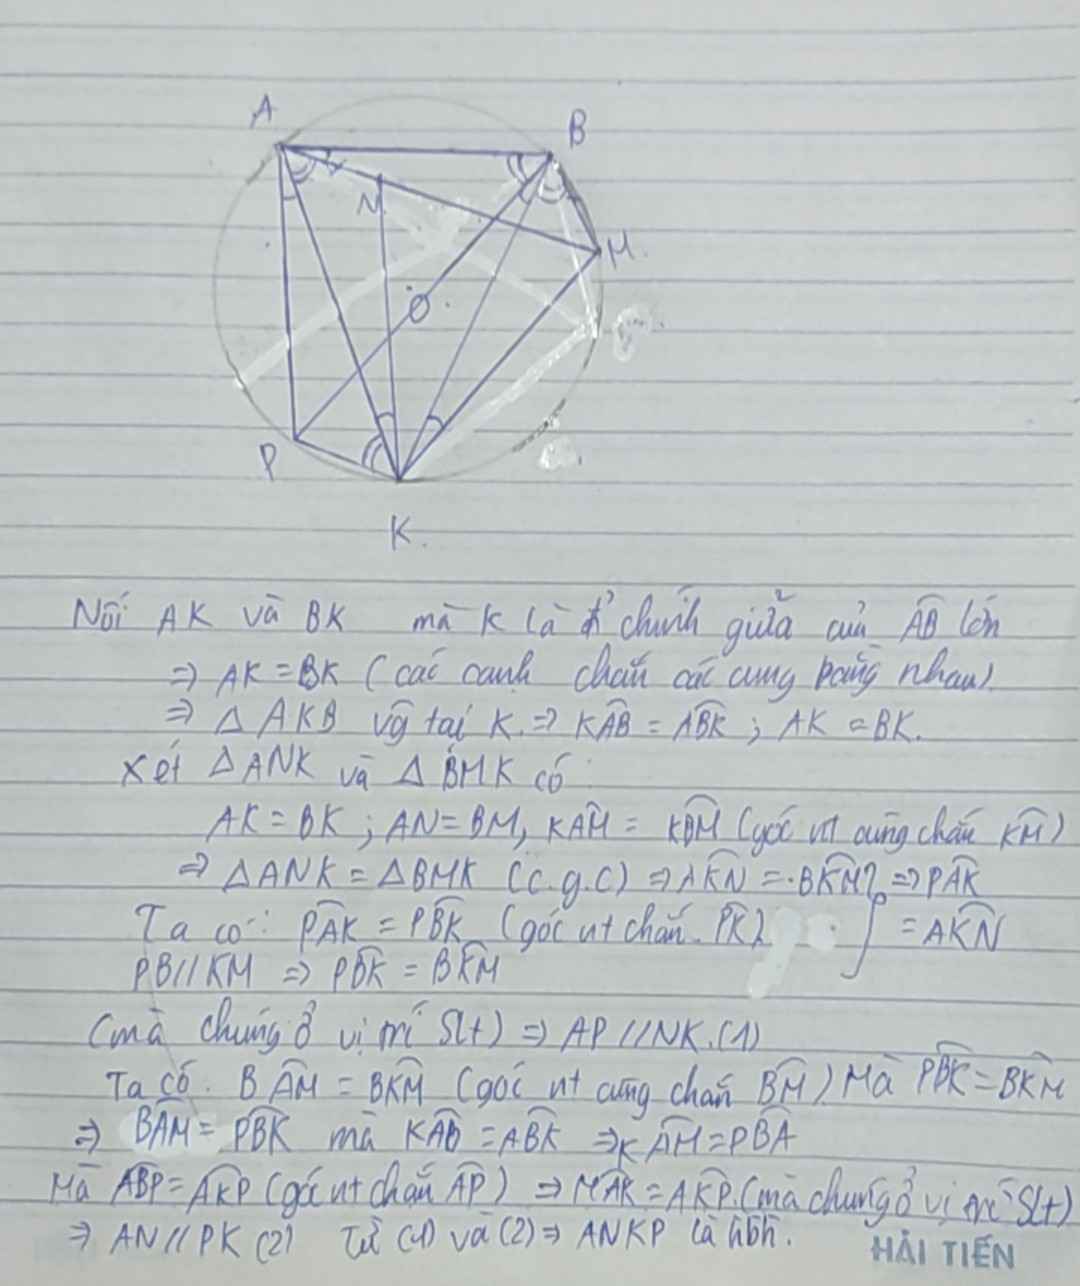 A
B
N
M.
O
P
K.
Nối AK và BK mà K là đ' chính giữa của AB lớn
=> AK = BK (các cạnh chắn các cung bằng nhau)
=> Δ AKB vg tại K. => KAB = ABK ; AK = BK.
Xét ΔANK và Δ BMK có :
AK = BK ; AN = BM, KAM = KBM (góc nt cùng chắn KM)
=> ΔANK = ΔBMK (c.g.c) => AKN = BKM } => PAK
Ta có : PAK = PBK (góc nt chắn PK) = AKN
PB // KM => PBK = BKM
(mà chúng ở vị trí slt) => AP // NK. (1)
Ta có. BAM = BKM (góc nt cùng chắn BM) Mà PBK = BKM
=> BAM = PBK mà KAB = ABK => KAM = PBA
Mà ABP = AKP (góc nt chắn AP) => MAK = AKP. (mà chúng ở vị trí slt)
=> AN // PK (2) Từ (1) và (2) => ANKP là hbh.
HẢI TIẾN